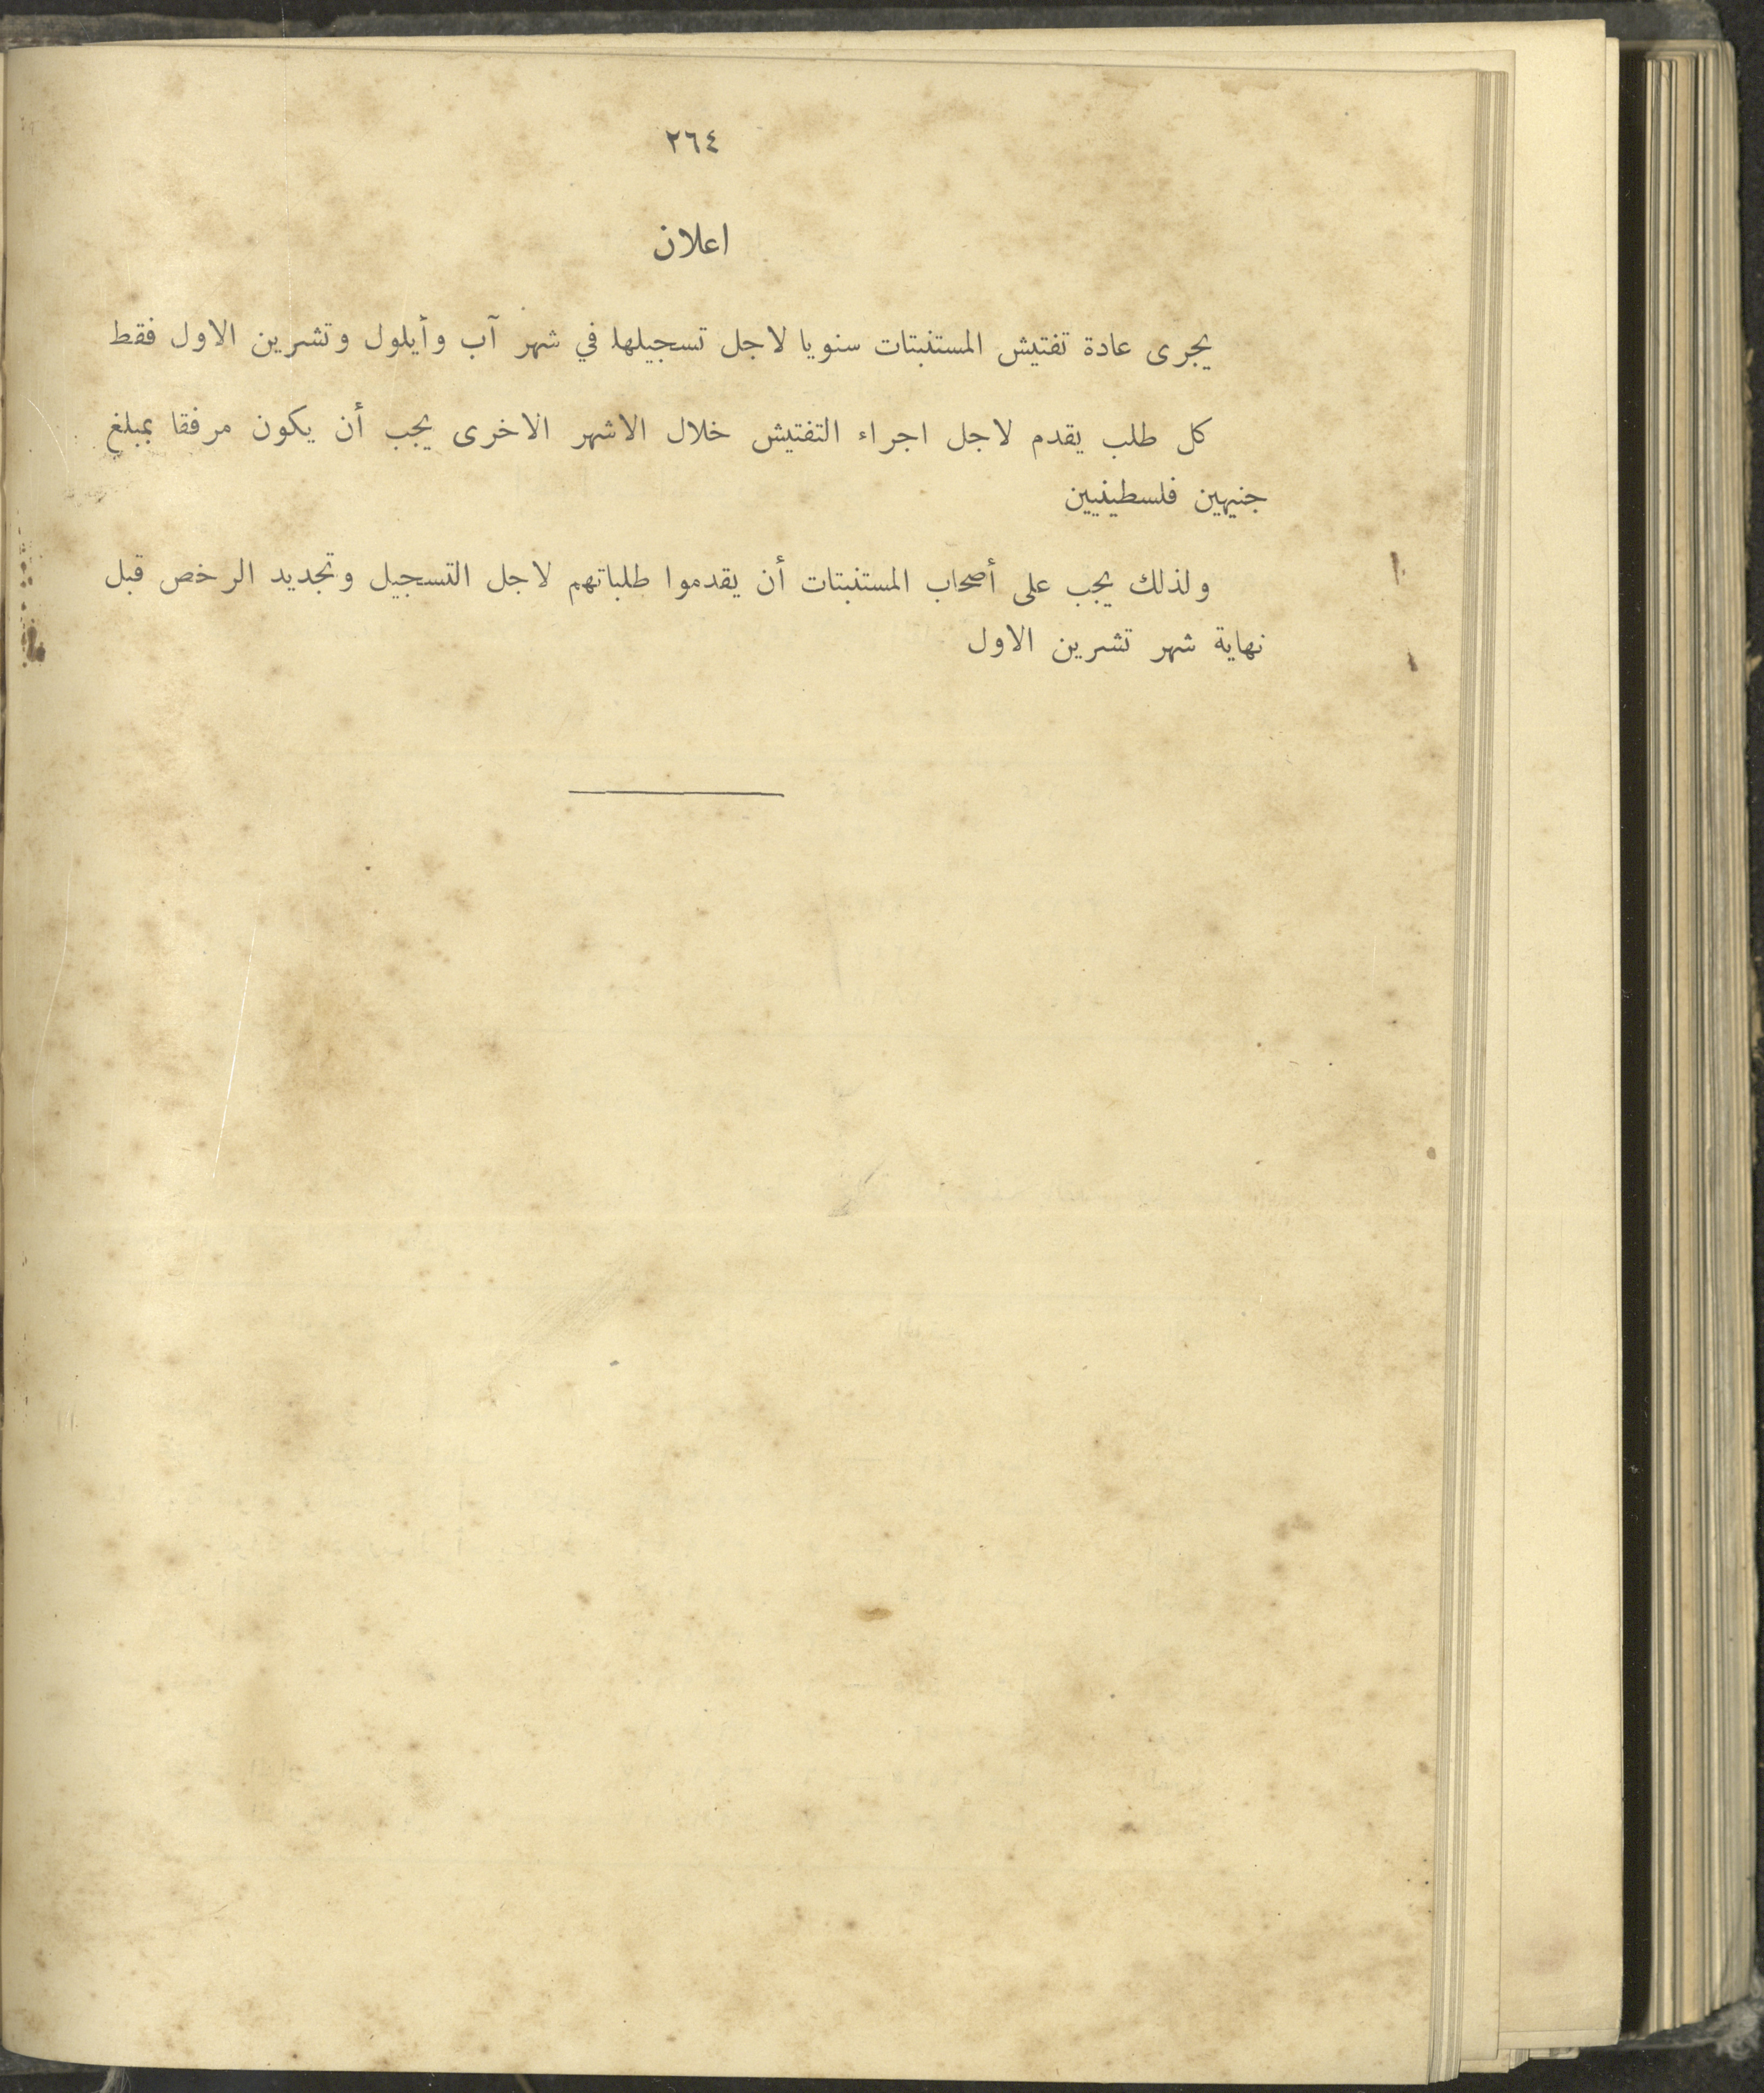 ٢٦٤
اعلان
يجرى عادة تفتيش المستنبتات سنويا لاجل تسجيلها في شهر آب وأيلول وتشرين الاول فقط
كل طلب يقدم لاجل اجراء التفتيش خلال الاشهر الاخرى يجب أن يكون مرفقا بمبلغ
جنيهين فلسطينيين
ولذلك يجب على أصحاب المستنبتات أن يقدموا طلباتهم لاجل التسجيل وتجديد الرخص قبل
نهاية شهر تشرين الاول